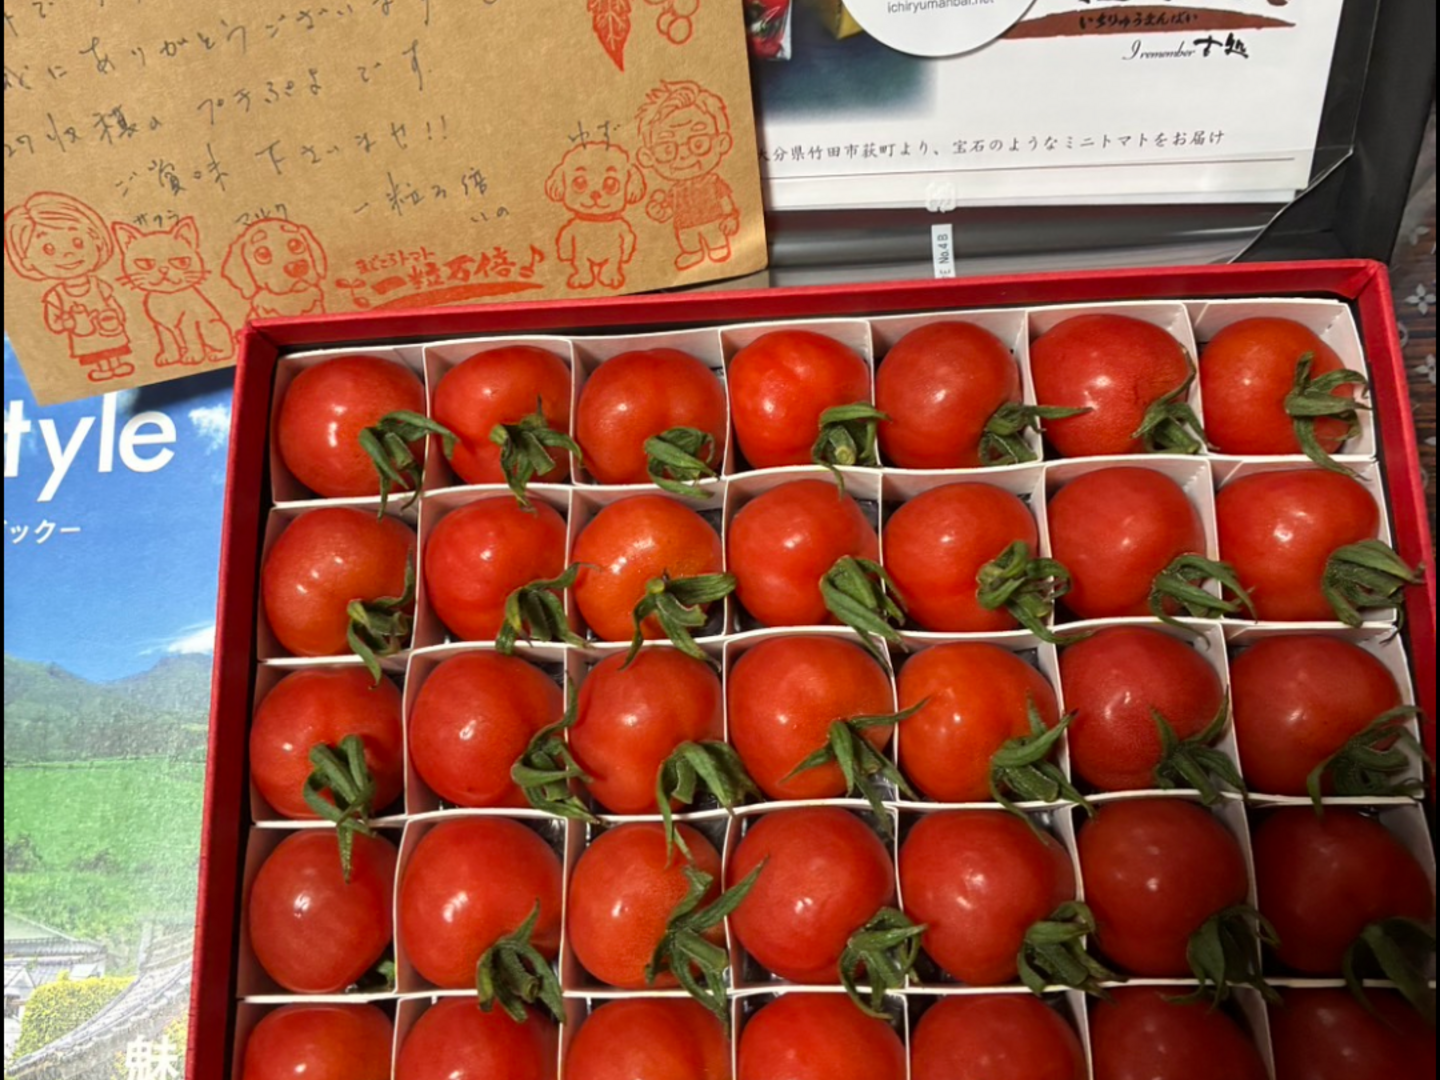 にありがとうございます
収穫の プチぷよです
ご賞味下さいませ!!
一粒万倍
いの
サクラ
マルク
ゆず
まごころトマト
一粒万倍
ichiryumanbai.net
いちりゅうまんばい
I remember
大分県竹田市荻町より、宝石のようなミニトマトをお届け
E No.4B
tyle
ックー
魅